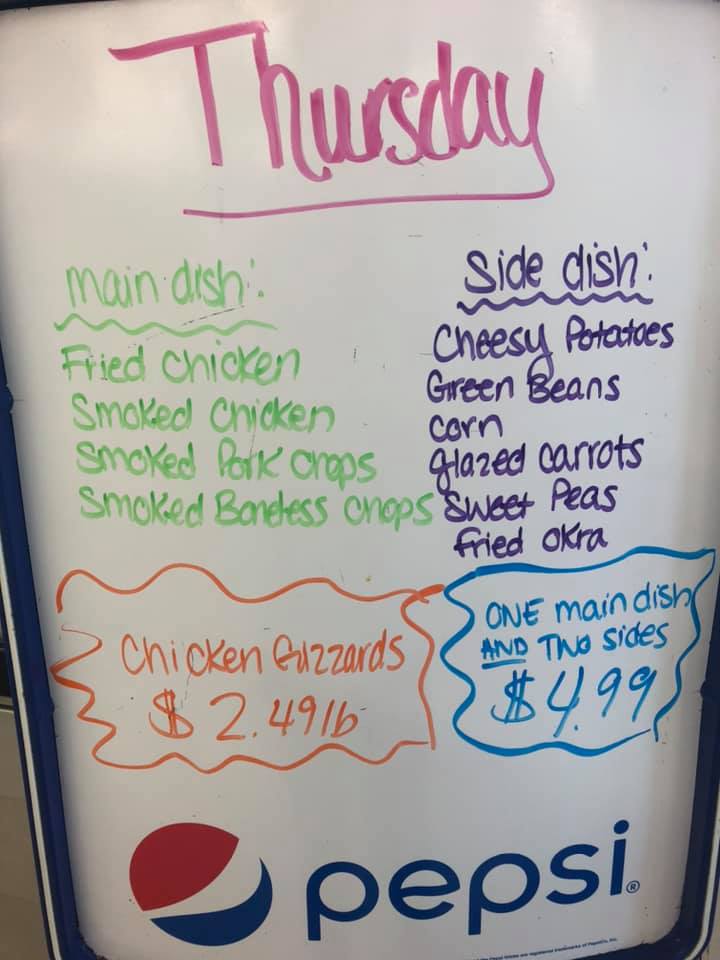 Thursday
main dish:
Fried chicken
Smoked Chicken
Smoked Pork Chops
Smoked Boneless Chops
Side dish:
Cheesy Potatoes
Green Beans
Corn
glazed carrots
Sweet Peas
fried okra
Chicken Guzzards
$2.49lb
ONE main dish
AND Two sides
$4.99
pepsi®